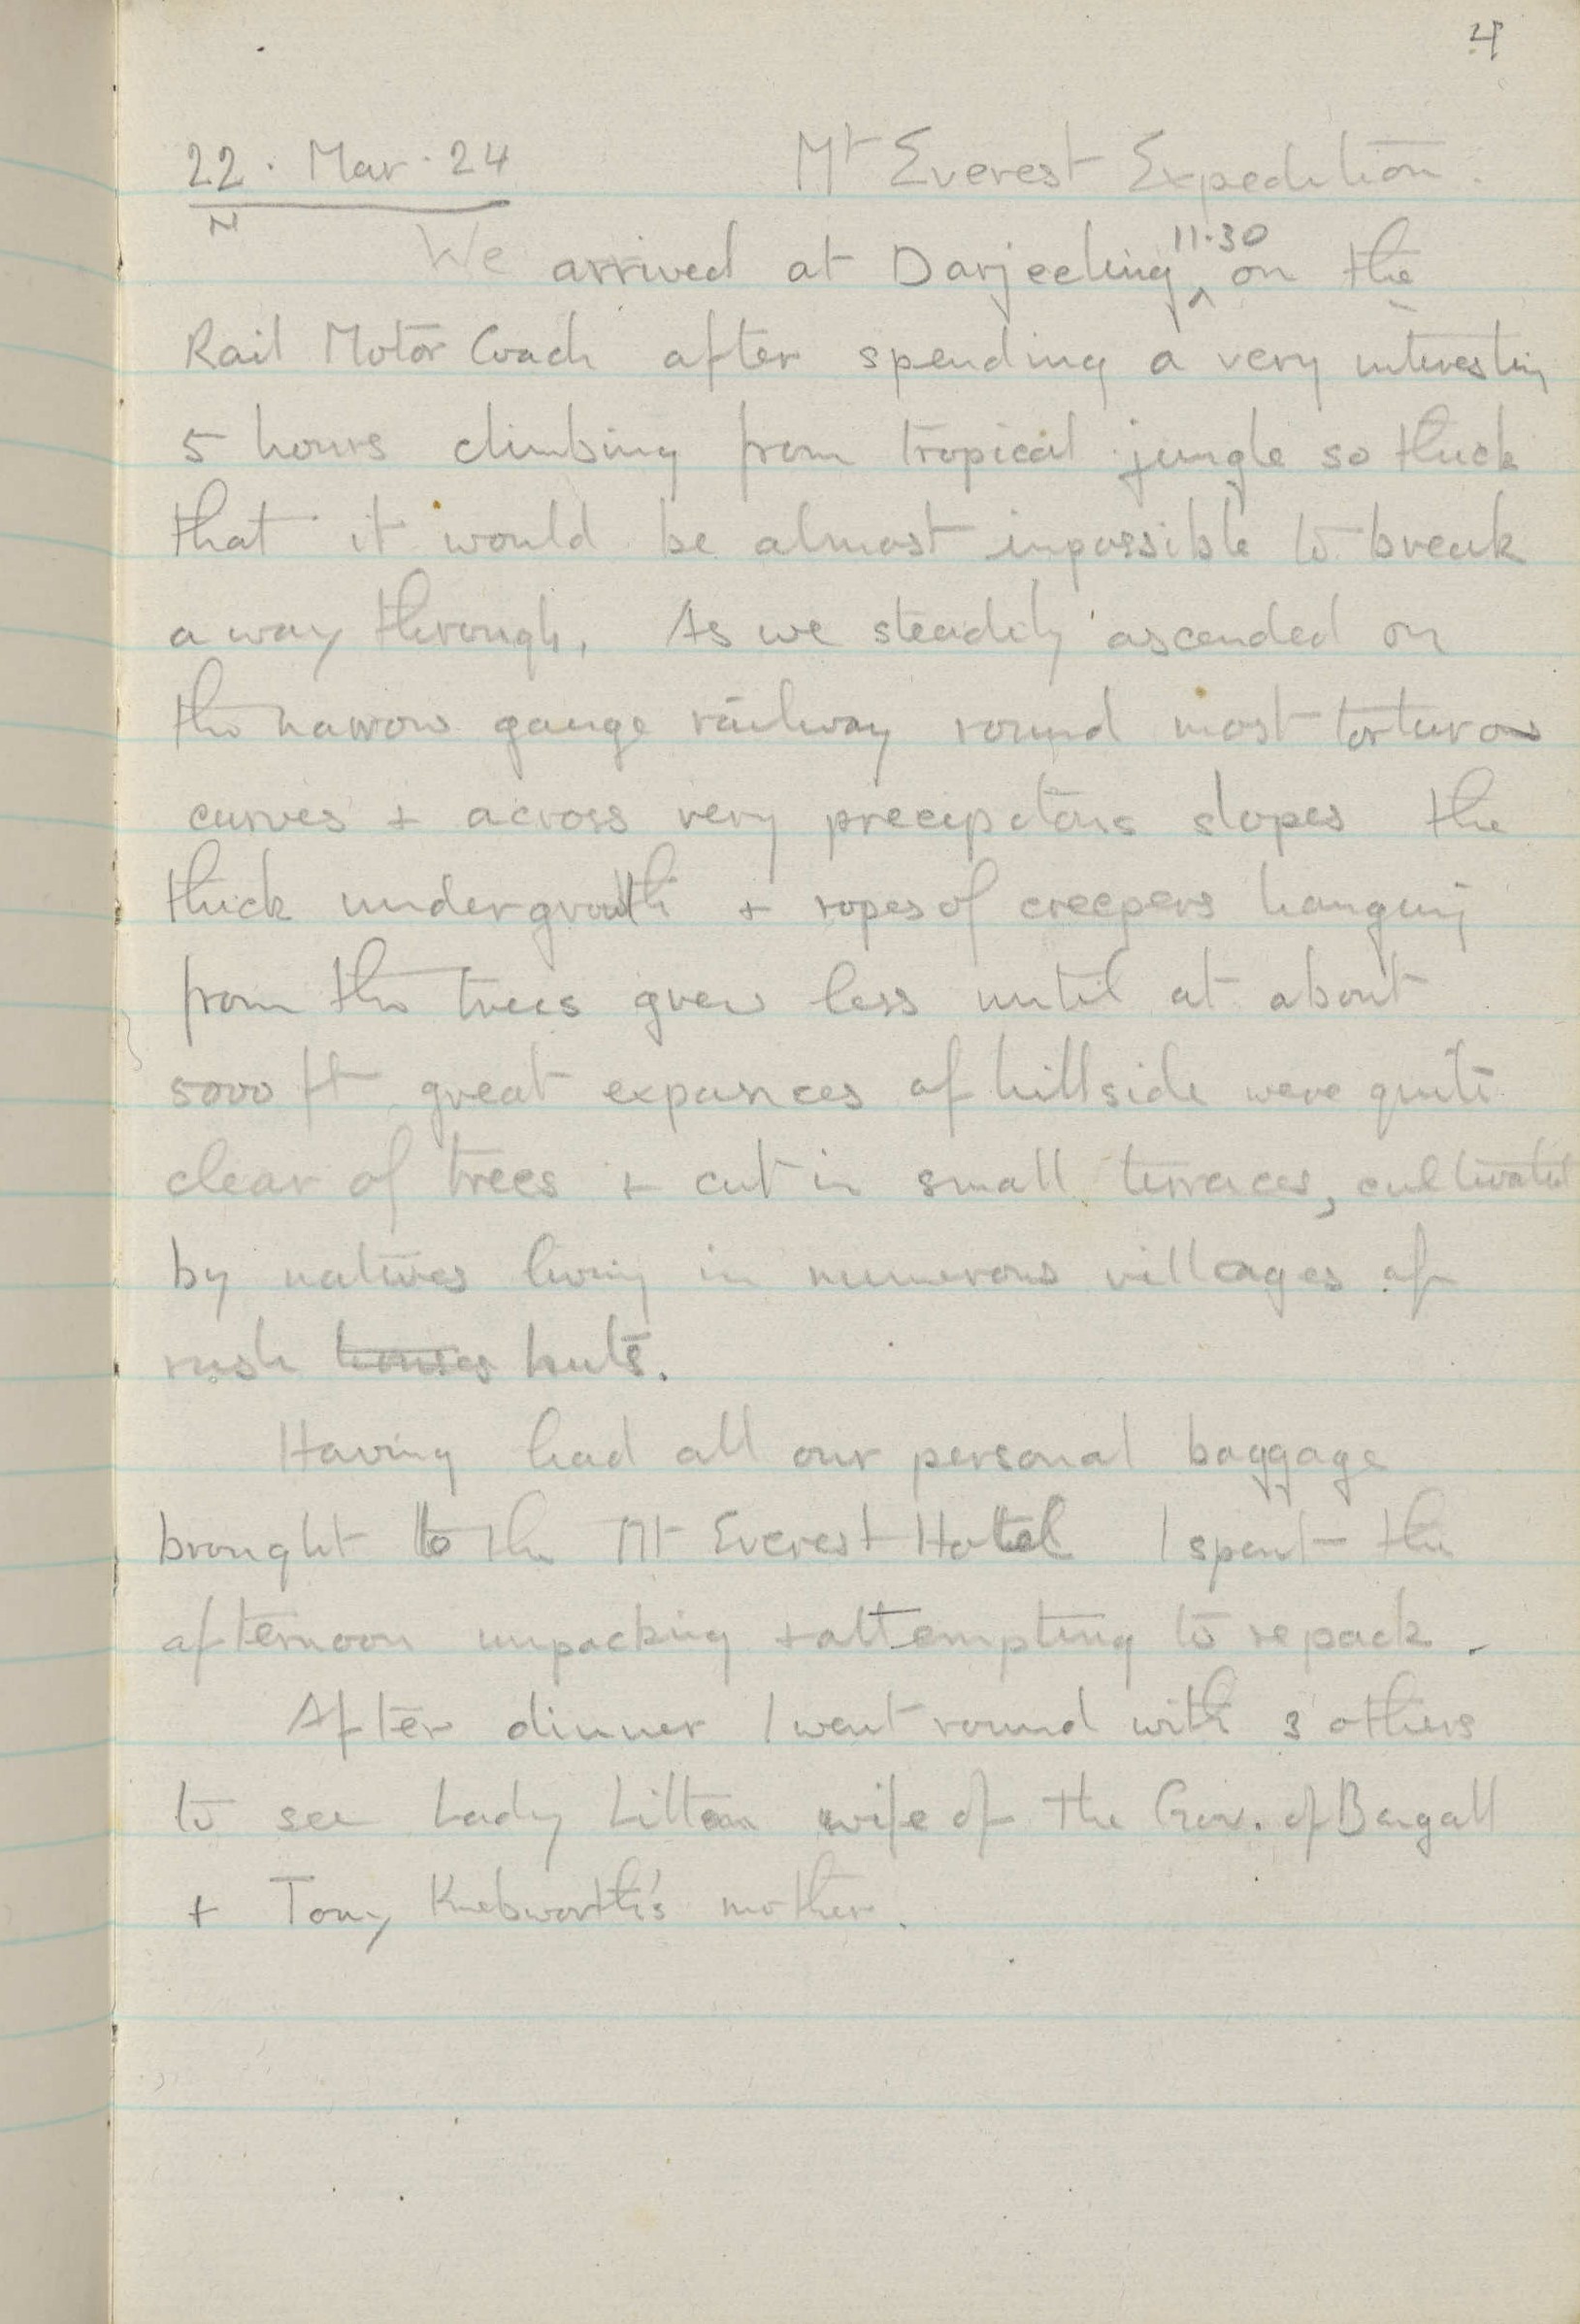 4
22. Mar. 24 Mt Everest Expedition.
N
We arrived at Darjeeling 11.30 on the
Rail Motor Coach after spending a very interesting
5 hours climbing from tropical jungle so thick
that it would be almost impossible to break
a way through. As we steadily ascended on
the narrow gauge railway round most torturous
curves + across very precipitous slopes the
thick undergrowth + ropes of creepers hanging
from the trees grew less until at about
5000 ft great expances of hillside were quite
clear of trees + cut in small terraces, cultivated
by natives living in numerous villages of
rush houses huts.
Having had all our personal baggage
brought to the Mt Everest Hotel I spent the
afternoon unpacking + attempting to repack.
After dinner I went round with 3 others
to see Lady Litton wife of the Gov. of Bengall
+ Tony Knebworth's mother.